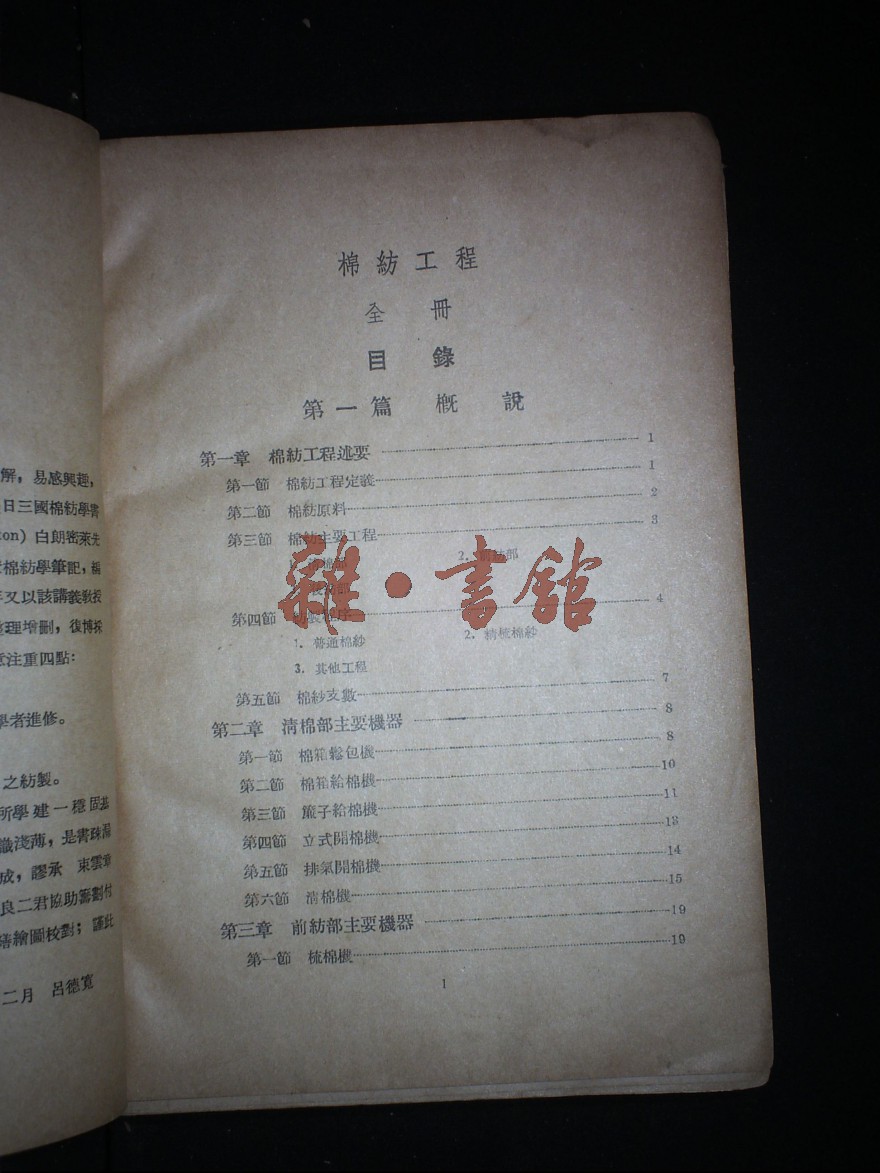 解，易感興趣，
日三國棉紡學書
ton) 白朗密萊先
棉紡學筆記，編
年又以該講義敎授
整理增刪，復博採
意注重四點：
學者進修。
之紡製。
所學建一穩固基
識淺薄，是書疎漏
成，謬承 東雲章
良二君協助籌劃付
繕繪圖校對；謹此
二月 呂德寬
棉紡工程
全 冊
目 錄
第一篇 概 說
第一章 棉紡工程述要 1
第一節 棉紡工程定義 1
第二節 棉紡原料 2
第三節 棉紡主要工程 3
1. 清棉部 2. 前紡部
第四節 4
1. 普通棉紗 2. 精梳棉紗
3. 其他工程
第五節 棉紗支數 7
第二章 淸棉部主要機器 8
第一節 棉箱鬆包機 8
第二節 棉箱給棉機 10
第三節 簾子給棉機 11
第四節 立式開棉機 13
第五節 排氣開棉機 14
第六節 淸棉機 15
第三章 前紡部主要機器 19
第一節 梳棉機 19
1
雜·書館